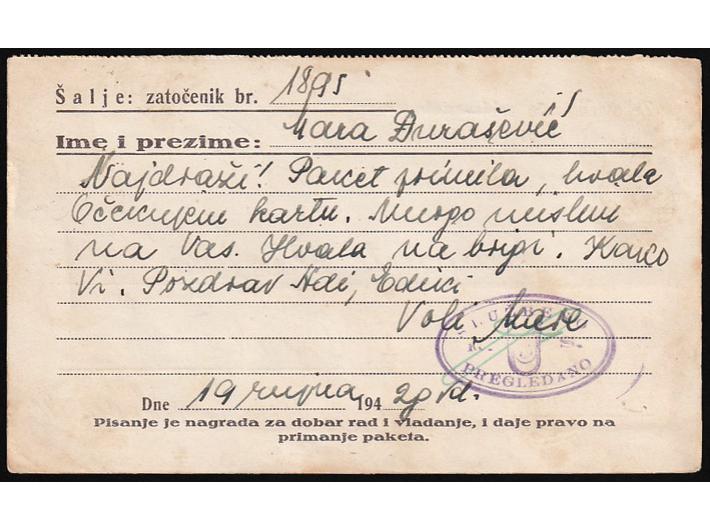 Šalje: zatočenik br. 1895
Ime i prezime: Mara Đurašević
Najdraži! Paket primila, hvala
Očekujem kartu. Mnogo mislim
na Vas. Hvala na brigi. Kako
Vi. Pozdrav Adi, Edici
Voli Mare
SLUŽBE
PREGLEDANO
Dne 19 rujna 1942 god.
Pisanje je nagrada za dobar rad i vladanje, i daje pravo na
primanje paketa.